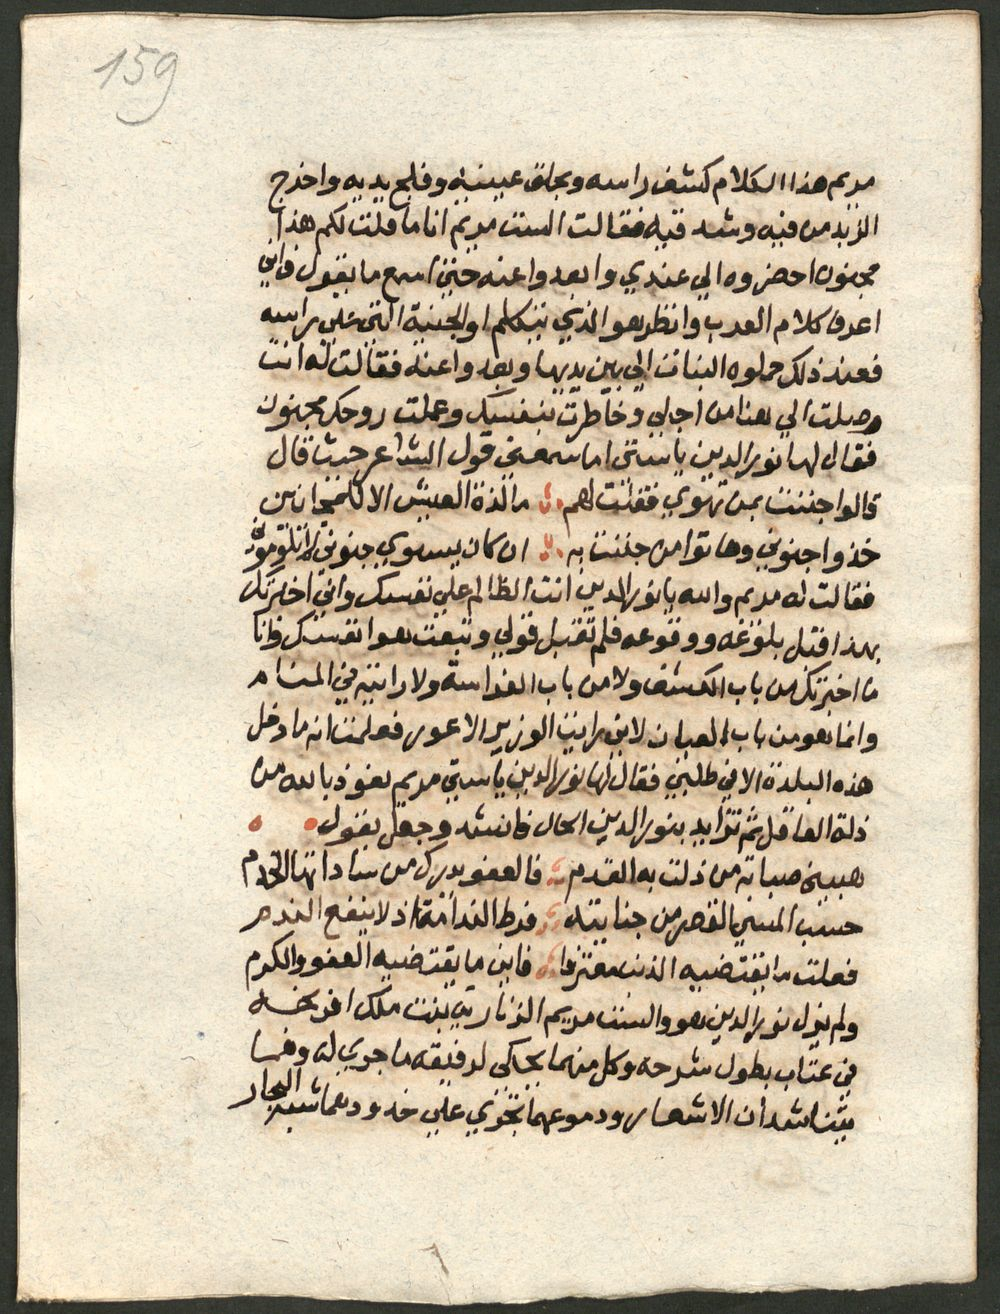 159
مريم هذا الكلام كشف راسه وبحلق عينيه وفلج يديه واخرج
الزبد من فيه وشد قيه فقالت الست مريم انا ما قلت لكم هذا
مجنون احضروه الي عندي وابعدوا عنه حتي اسمع ما يقول فاني
اعرف كلام العرب وانظر هو الذي يتكلم او الجنية التي علي راسه
فعند ذلك حملوه البنات الي بين يديها وبعدوا عنه فقالت له انت
وصلت الي هنا من اجلي وخاطرت بنفسك وعملت روحك مجنون
فقال لها نور الدين ياستي اما سمعتي قول الشاعر حيث قال
قالوا جننت بمن تهوي فقلت لهم ما لذة العيش الا للمجانين
خذوا جنوني وهاتوا من جننت به ان كان يسوي جنوني لا تلوموني
فقالت له مريم والله يا نور الدين انت الظالم علي نفسك واني اخبرتك
بهذا قبل بلوغه ووقوعه فلم تقبل قولي وتبعت هوا نفسك وانا
ما اخبرتك من باب الكشف ولا من باب الفراسة ولا رايته في المنام
وانما هو من باب العيان لاني رايت الوزير الاعور فعلمت انه ما دخل
هذه البلدة الا في طلبي فقال لها نور الدين ياستي مريم نعوذ بالله من
زلة العاقل ثم تزايد بنور الدين الحال فانشد وجعل يقول
هبيني جناية من زلت به القدم فالعفو يدرك من ساداتها الخدم
حسب المسي المقصر من جنايته فرط الندامة اذ لا ينفع الندم
فعلت ما يقتضيه الذنب معترفا فاين ما يقتضيه العفو والكرم
ولم يزل نور الدين هو والست مريم الزنارية بنت ملك افرنجه
في عتاب يطول شرحه وكل منهما يحاكي لرفيقه ما جري له وهما
يتناشدان الاشعار ودموعهما تجري علي خدودهما شبه البحار